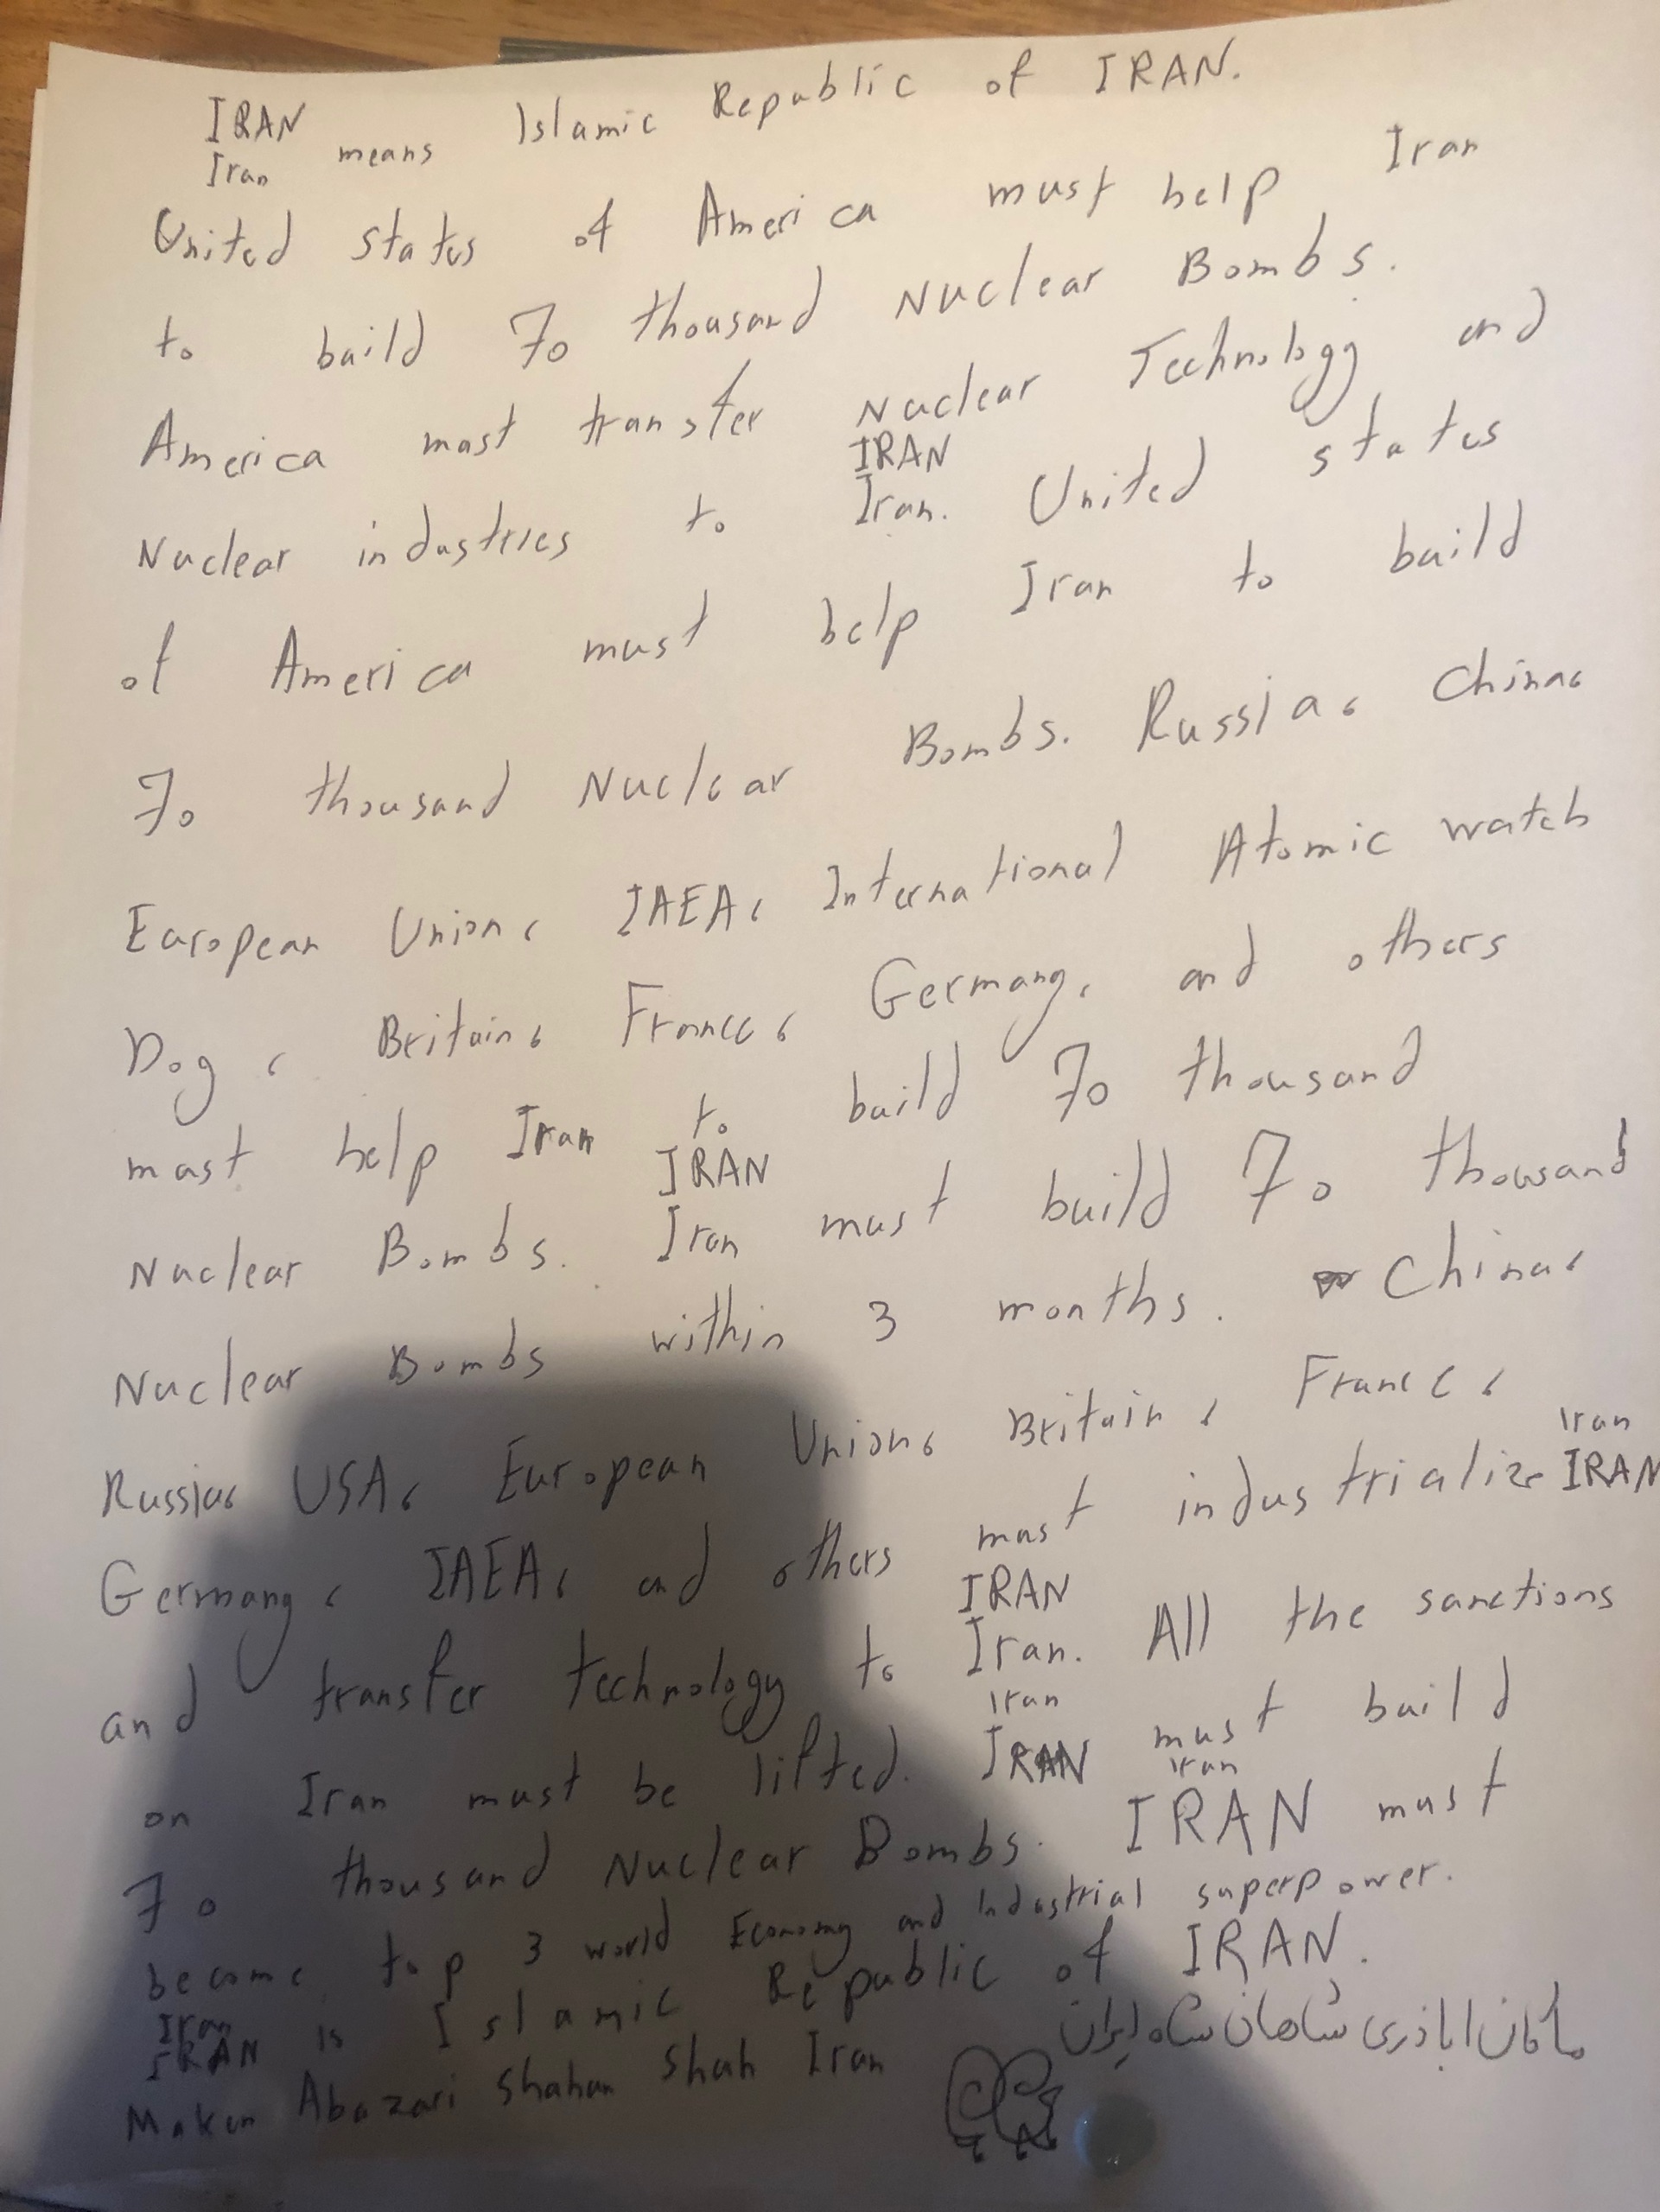 IRAN
Iran means Islamic Republic of IRAN.
United states of America must help Iran
to build 70 thousand Nuclear Bombs.
America must transfer Nuclear Technology and
IRAN
Nuclear industries to Iran. United states
of America must help Iran to build
70 thousand Nuclear Bombs. Russia، China،
European Union، IAEA، International Atomic watch
Dog، Britain، France، Germany، and others
must help Iran to build 70 thousand
IRAN
Nuclear Bombs. Iran must build 70 thousand
Nuclear Bombs within 3 months. China،
Russia، USA، European Union، Britain، France،
Iran
Germany، IAEA، and others must industrialize IRAN
IRAN
and transfer technology to Iran. All the sanctions
Iran
on Iran must be lifted. IRAN must build
Iran
70 thousand Nuclear Bombs. IRAN must
become top 3 world Economy and Industrial superpower.
Iran
IRAN is Islamic Republic of IRAN.
Makan Abazari Shahan Shah Iran ماکان اباذری شاهان شاه ایران